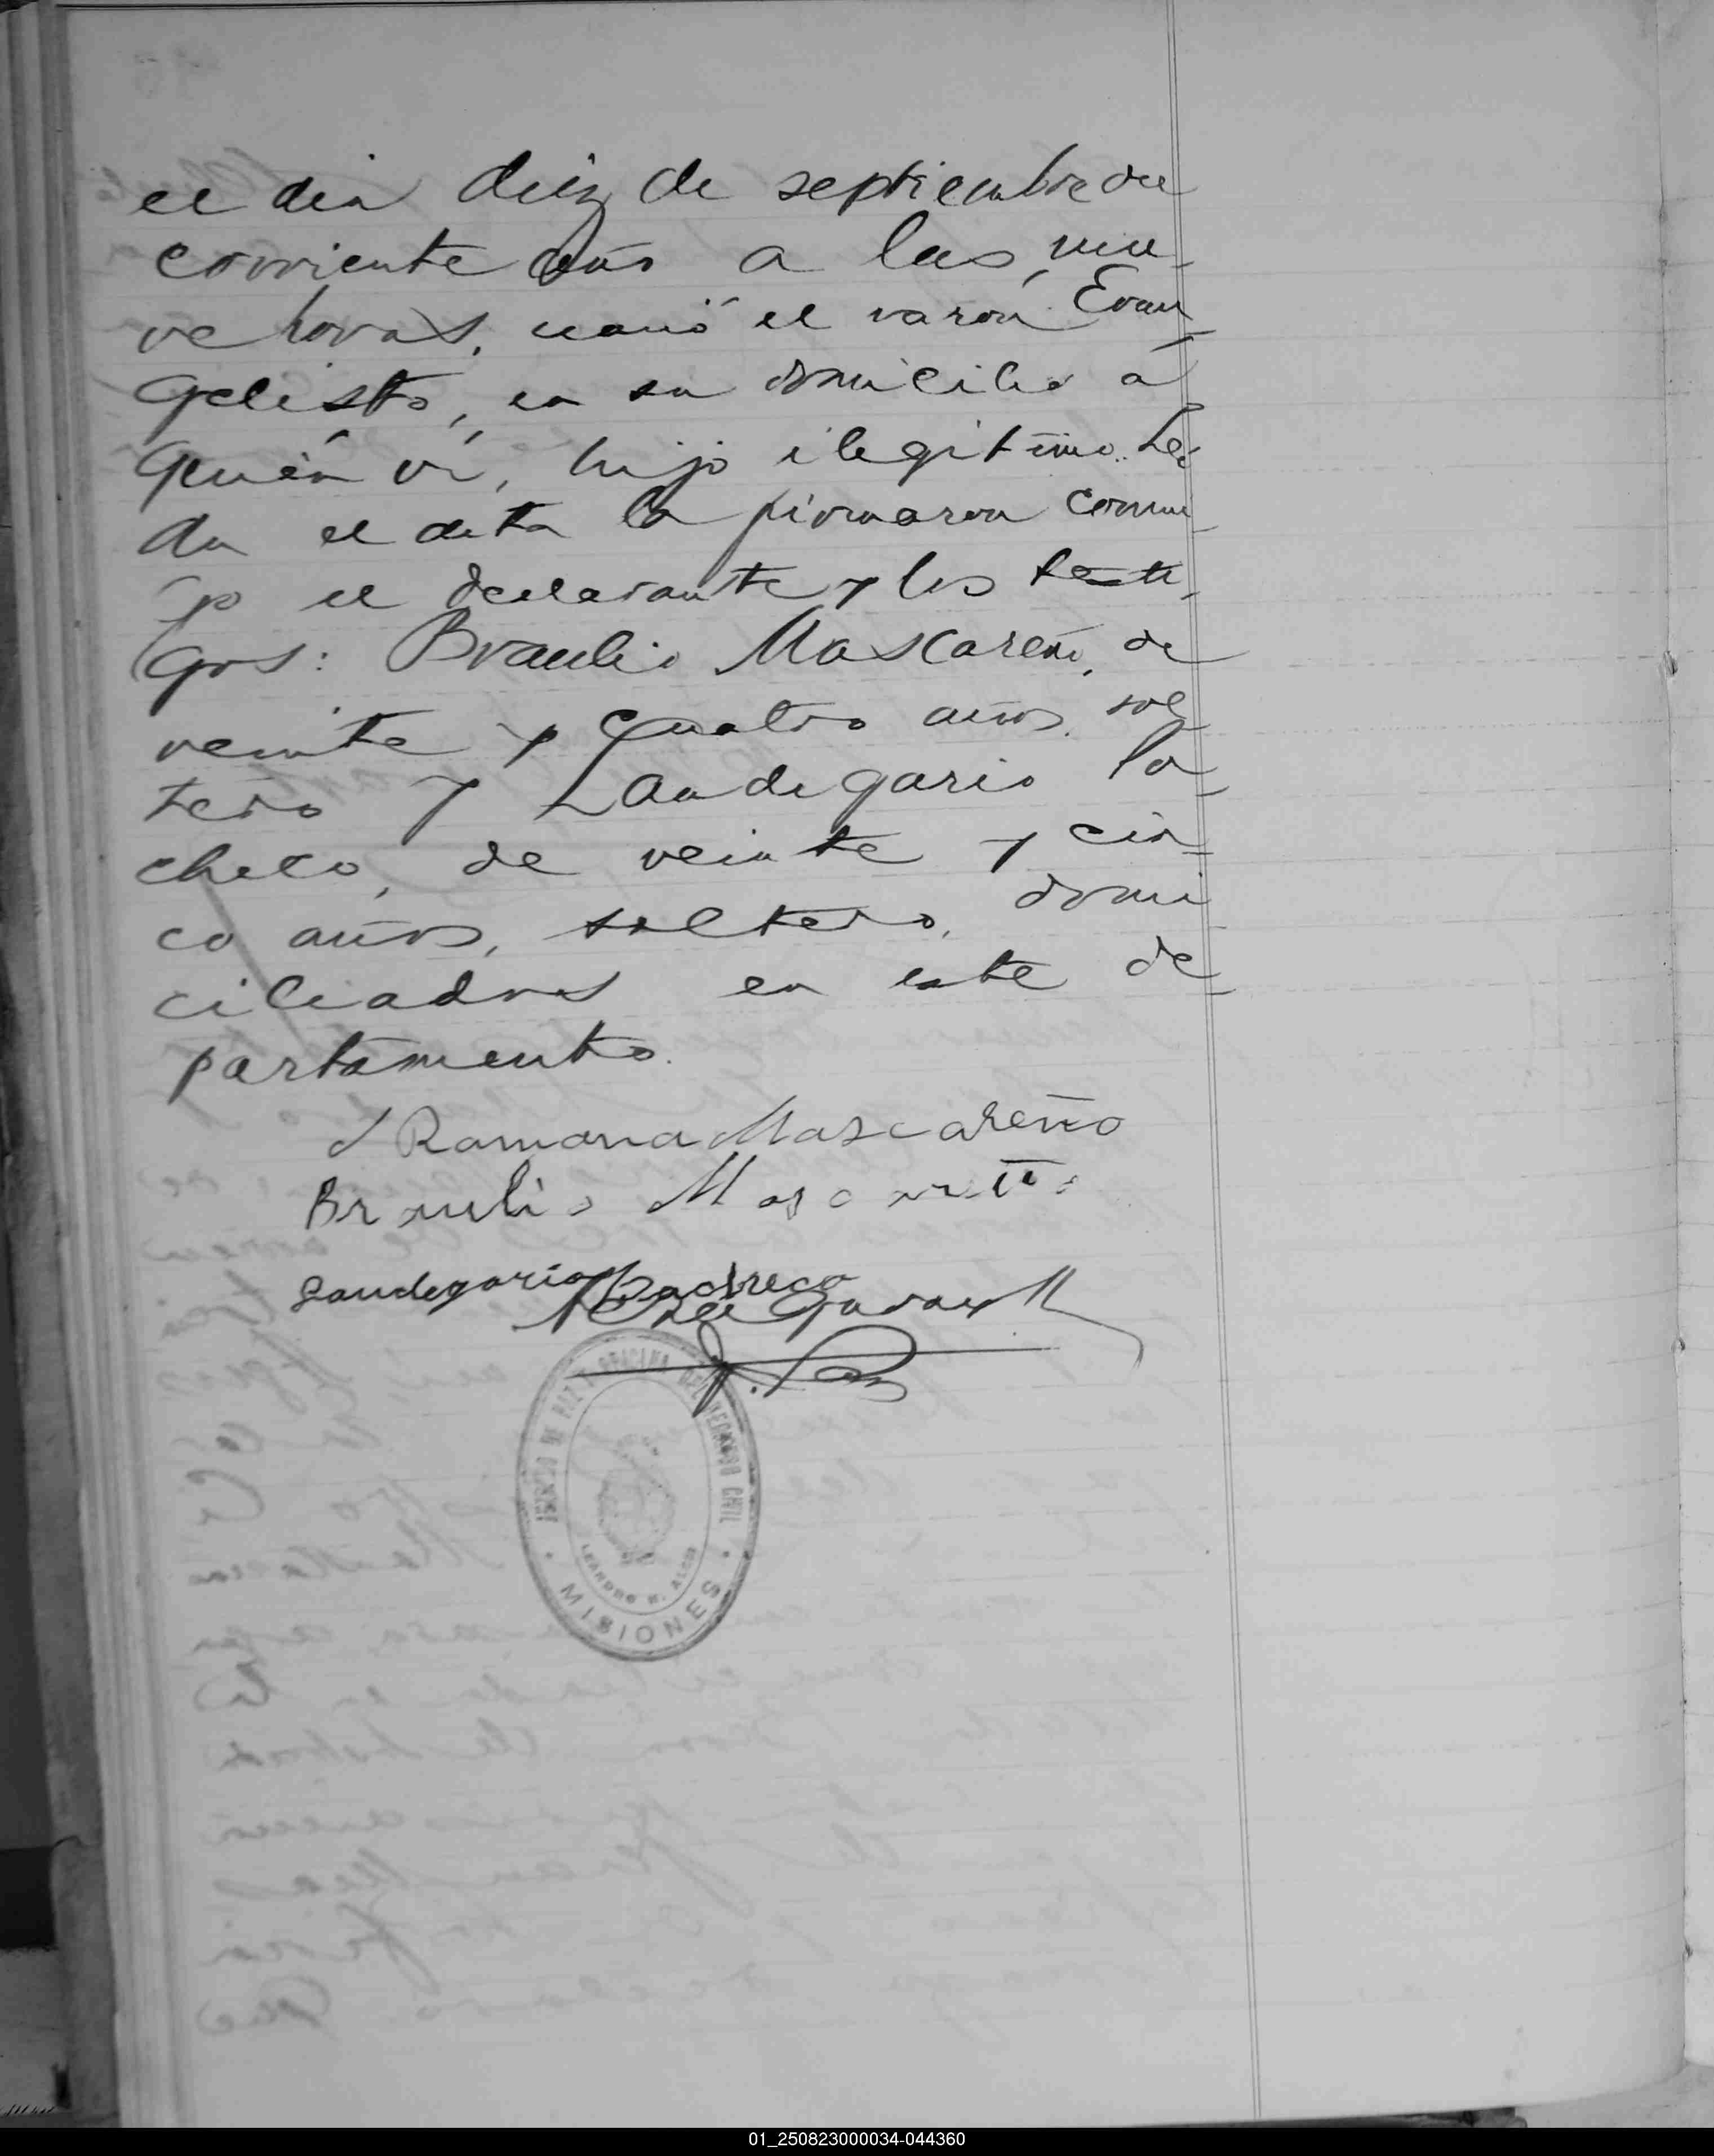 el dia diez de septiembre del
corriente año a las nue-
ve horas, nació el varón Evan-
gelisto, en su domicilio a
quién ví, hijo ilegitimo. Leí-
da el acta la firmaron conmi-
go el declarante y los testi-
gos: Braulio Mascareño, de
veinte y cuatro años, sol-
tero y Laudegario Pa-
checo, de veinte y cin-
co años, soltero, domi-
ciliados en este de-
partamento.
Ramona Mascareño
Braulio Mascareño
Laudegario Pacheco
J. Paz
JUZGADO DE PAZ Y OFICINA DEL REGISTRO CIVIL
LEANDRO N. ALEM
MISIONES
01_250823000034-044360